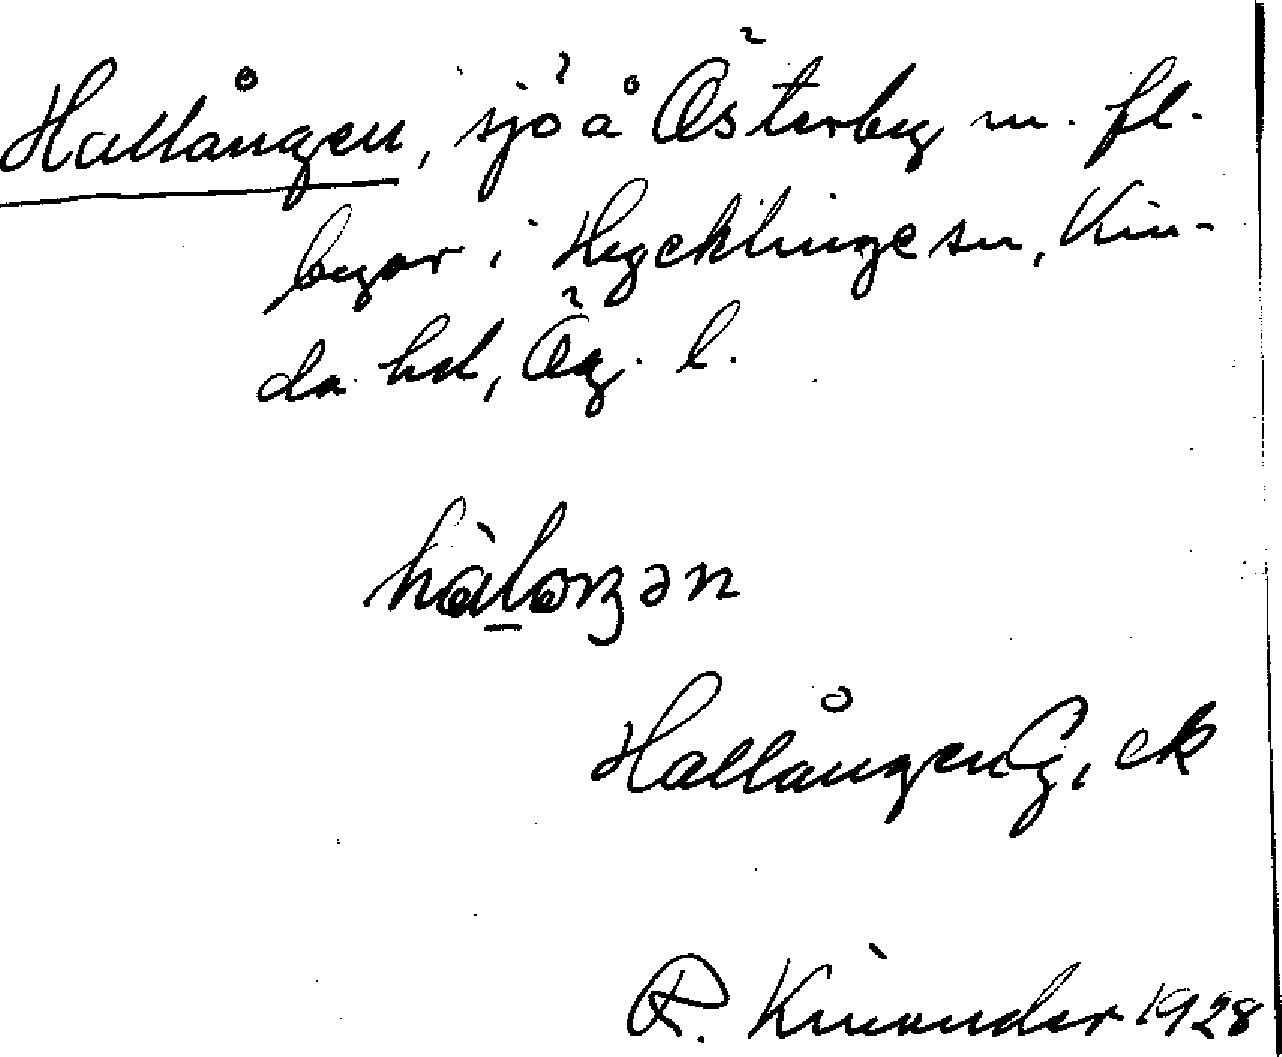 Hallången, sjö å Österby m. fl.
byar i Hycklinge sn, Kin-
da hd, Ög. l.
Hallången G, ek
R. Kinander 1928